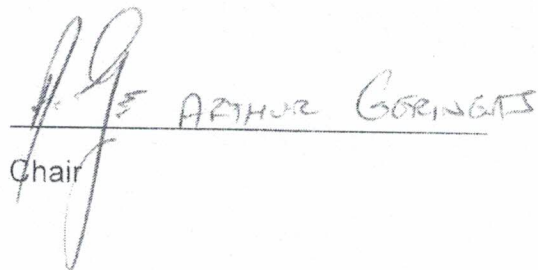 ARTHUR GERINGAS
Chair